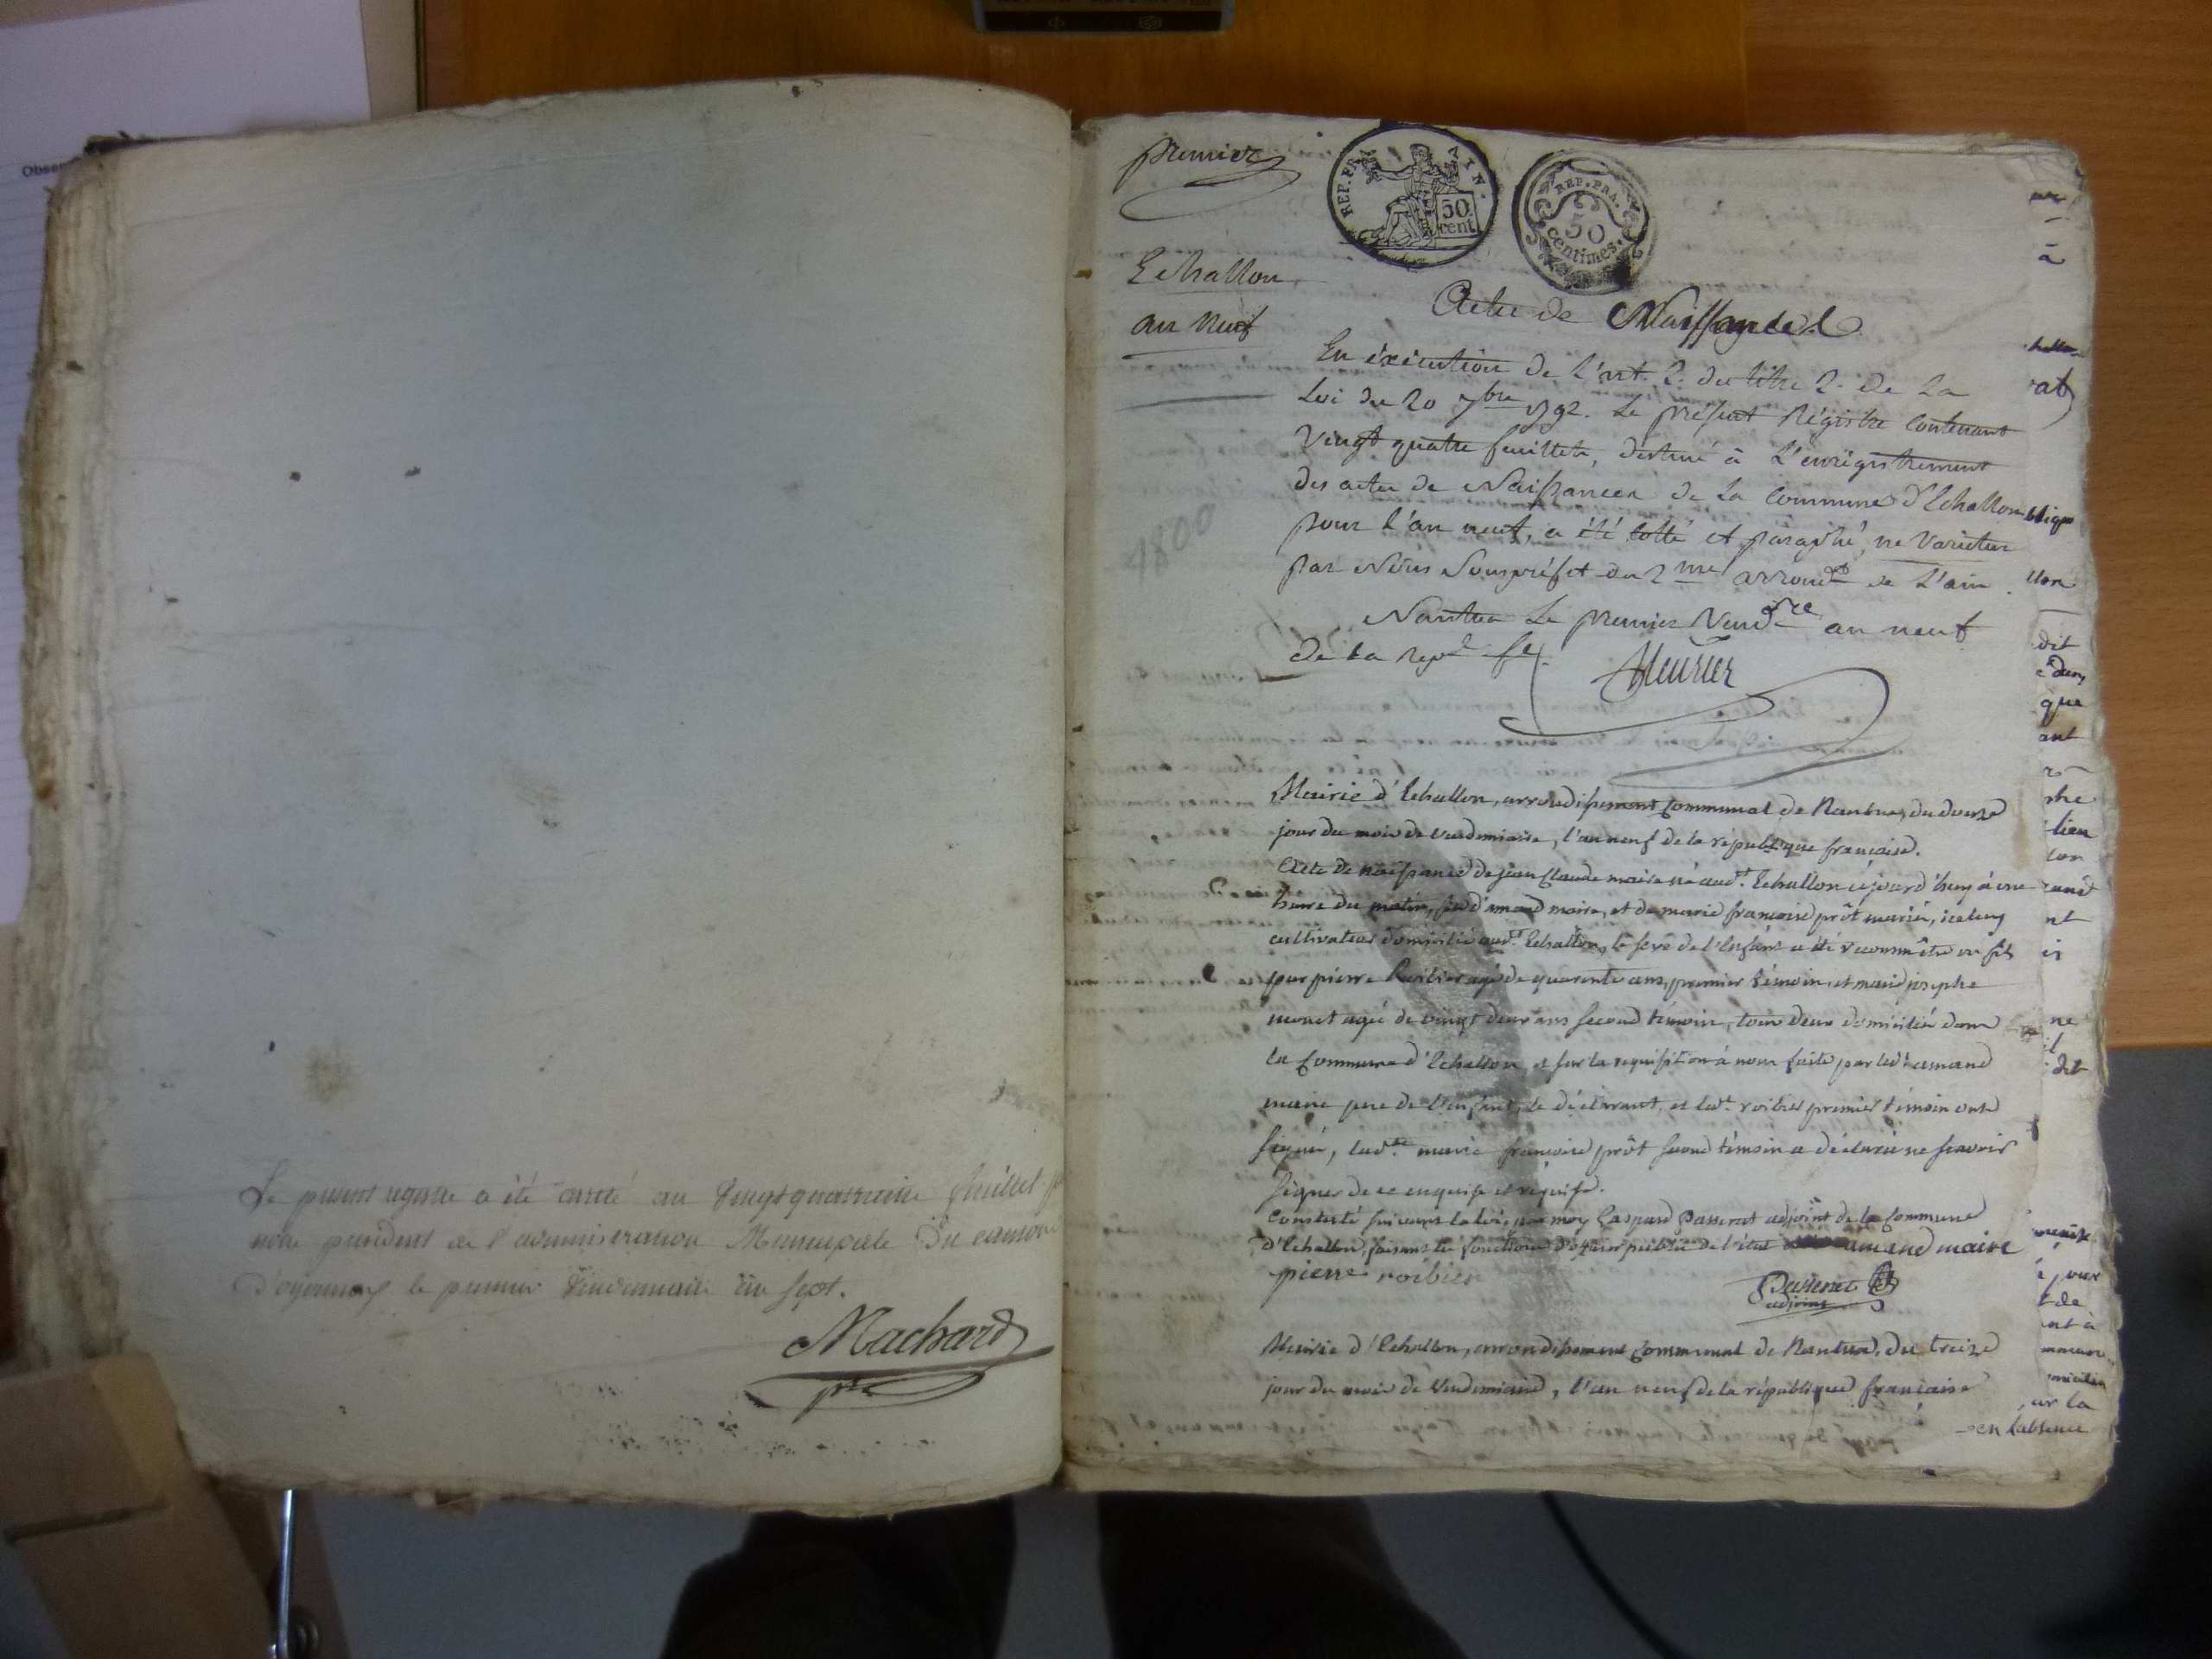 Le present registre a été arreté au vingt quatrieme feuillet
nous president de l'administration Municipale du canton
d'oyonnax le premier Vendemiaire an sept.
Machard
pre
premier
REP. FRA. AIN.
50 cent
REP. FRA.
50
centimes.
Echallon
an neuf
1800
Actes de Naissances.
En éxécution de l'art. 2. du titre 2. de la
Loi du 20 7bre 1792. Le présent Régistre contenant
vingt quatre feuillets, destiné à L'enrégistrement
des actes de Naissances de la Commune d'Echallon
pour l'an neuf, a été cotté et paraphé, ne varietur
par Nous Souspréfet du 2me arrondt de L'ain.
Nantua Le premier Vendre an neuf
de la repe fe.
Mairie d'Echallon, arrondissement communal de Nantua, du douze
jour du mois de vendemiaire, l'an neuf de la république francaise.
Acte de naissance de jean Claude maire né audt. Echallon cejourd'huy à une
heure du matin, fils d'amand maire, et de marie francoise prôt mariés, iceluy
cultivateur domicilié audt. Echallon, le sexe de l'Enfant a été reconnu être un fils
par pierre Roibier agé de quarente ans, premier témoin, et marie josephe
monet agée de vingt deux ans second témoin, tous deux domiciliés dans
la Commune d'Echallon, et sur la requisition à nous faite par ledt. amand
maire pere de l'enfant, le déclarant, et ledt. roibier premier témoin ont
signé, ladte. marie francoise prôt second témoin a déclaré ne scavoir
signer de ce enquise et requise.
Constaté suivant la loi, par moy Gaspard Passerat adjoint de la Commune
d'Echallon, faisant les fonctions d'officier public de l'état amand maire
pierre roibier
Passerat
adjoint
Mairie d'Echallon, arrondissement communal de Nantua, du treize
jour du mois de vendemiaire, l'an neuf de la république francaise
en l'absence